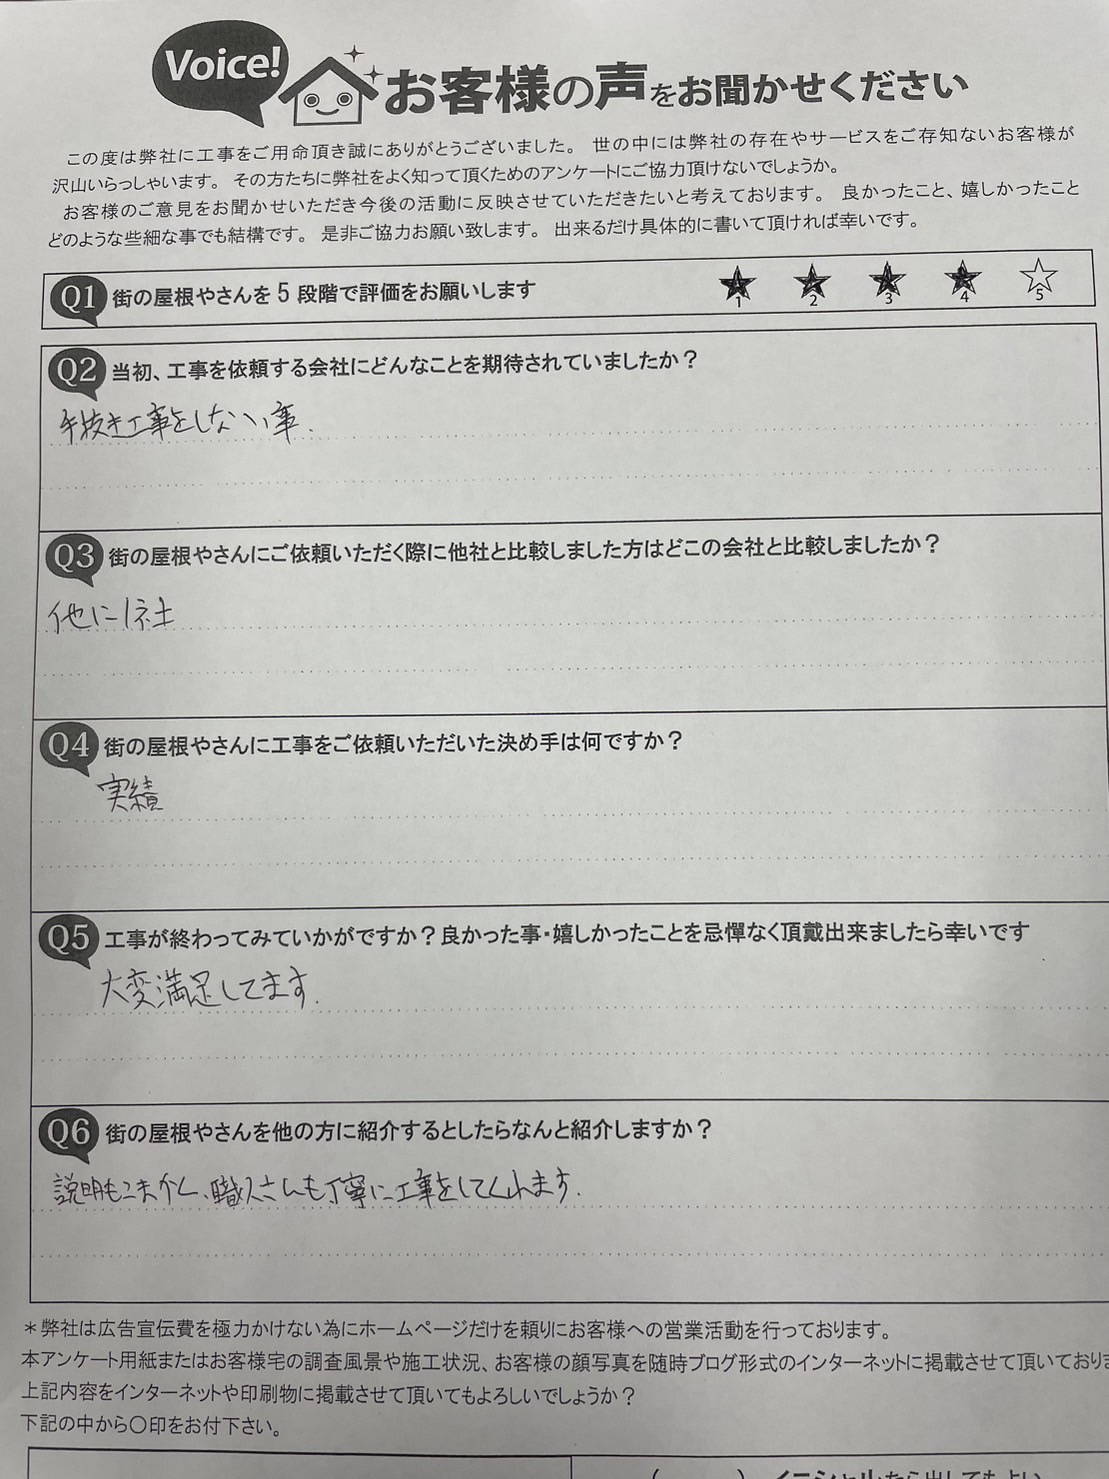 Voice!
お客様の声をお聞かせください
この度は弊社に工事をご用命頂き誠にありがとうございました。 世の中には弊社の存在やサービスをご存知ないお客様が
沢山いらっしゃいます。 その方たちに弊社をよく知って頂くためのアンケートにご協力頂けないでしょうか。
お客様のご意見をお聞かせいただき今後の活動に反映させていただきたいと考えております。 良かったこと、嬉しかったこと
どのような些細な事でも結構です。 是非ご協力お願い致します。 出来るだけ具体的に書いて頂ければ幸いです。
Q1 街の屋根やさんを5段階で評価をお願いします
1 2 3 4 5
Q2 当初、工事を依頼する会社にどんなことを期待されていましたか？
手抜き工事をしない事.
Q3 街の屋根やさんにご依頼いただく際に他社と比較しました方はどこの会社と比較しましたか？
他に1社
Q4 街の屋根やさんに工事をご依頼いただいた決め手は何ですか？
実績
Q5 工事が終わってみていかがですか？良かった事・嬉しかったことを忌憚なく頂戴出来ましたら幸いです
大変満足してます.
Q6 街の屋根やさんを他の方に紹介するとしたらなんと紹介しますか？
説明もこまかく、職人さんも丁寧に工事をしてくれます.
＊弊社は広告宣伝費を極力かけない為にホームページだけを頼りにお客様への営業活動を行っております。
本アンケート用紙またはお客様宅の調査風景や施工状況、お客様の顔写真を随時ブログ形式のインターネットに掲載させて頂いており
上記内容をインターネットや印刷物に掲載させて頂いてもよろしいでしょうか？
下記の中から〇印をお付下さい。
( ) イニシャルなら出してもよい